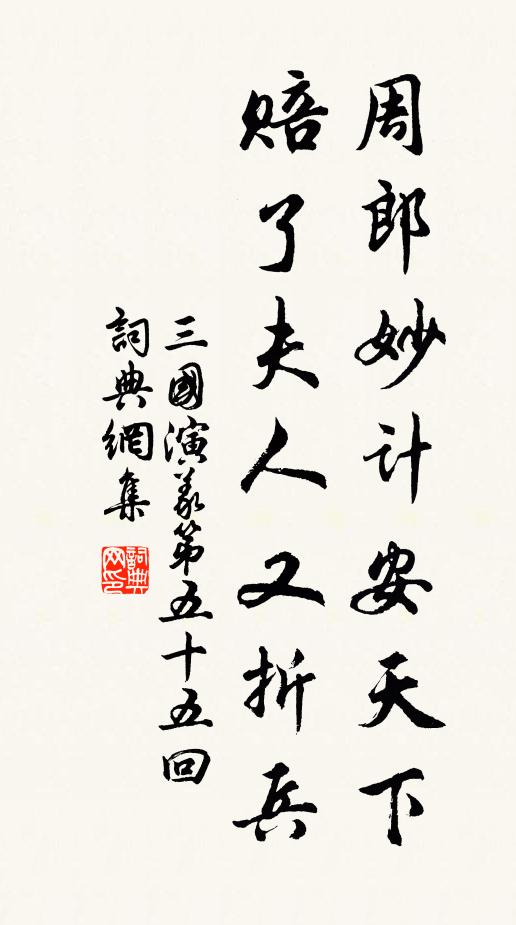 周郎妙计安天下
赔了夫人又折兵
三國演義第五十五回
詞典網集
詞典
网印